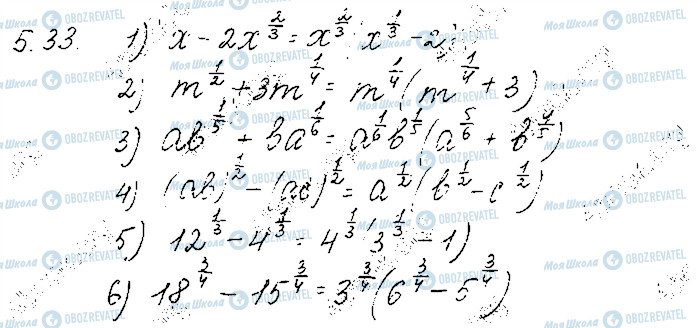 5.33. 1) x - 2x^{2/3} = x^{2/3} x^{1/3} - 2;
2) m^{1/2} + 3m^{1/4} = m^{1/4}(m^{1/4} + 3)
3) ab^{1/5} + ba^{1/6} = a^{1/6}b^{1/5}(a^{5/6} + b^{4/5})
4) (ab)^{1/2} - (ac)^{1/2} = a^{1/2}(b^{1/2} - c^{1/2})
5) 12^{1/3} - 4^{1/3} = 4^{1/3}(3^{1/3} - 1)
6) 18^{3/4} - 15^{3/4} = 3^{3/4}(6^{3/4} - 5^{3/4})